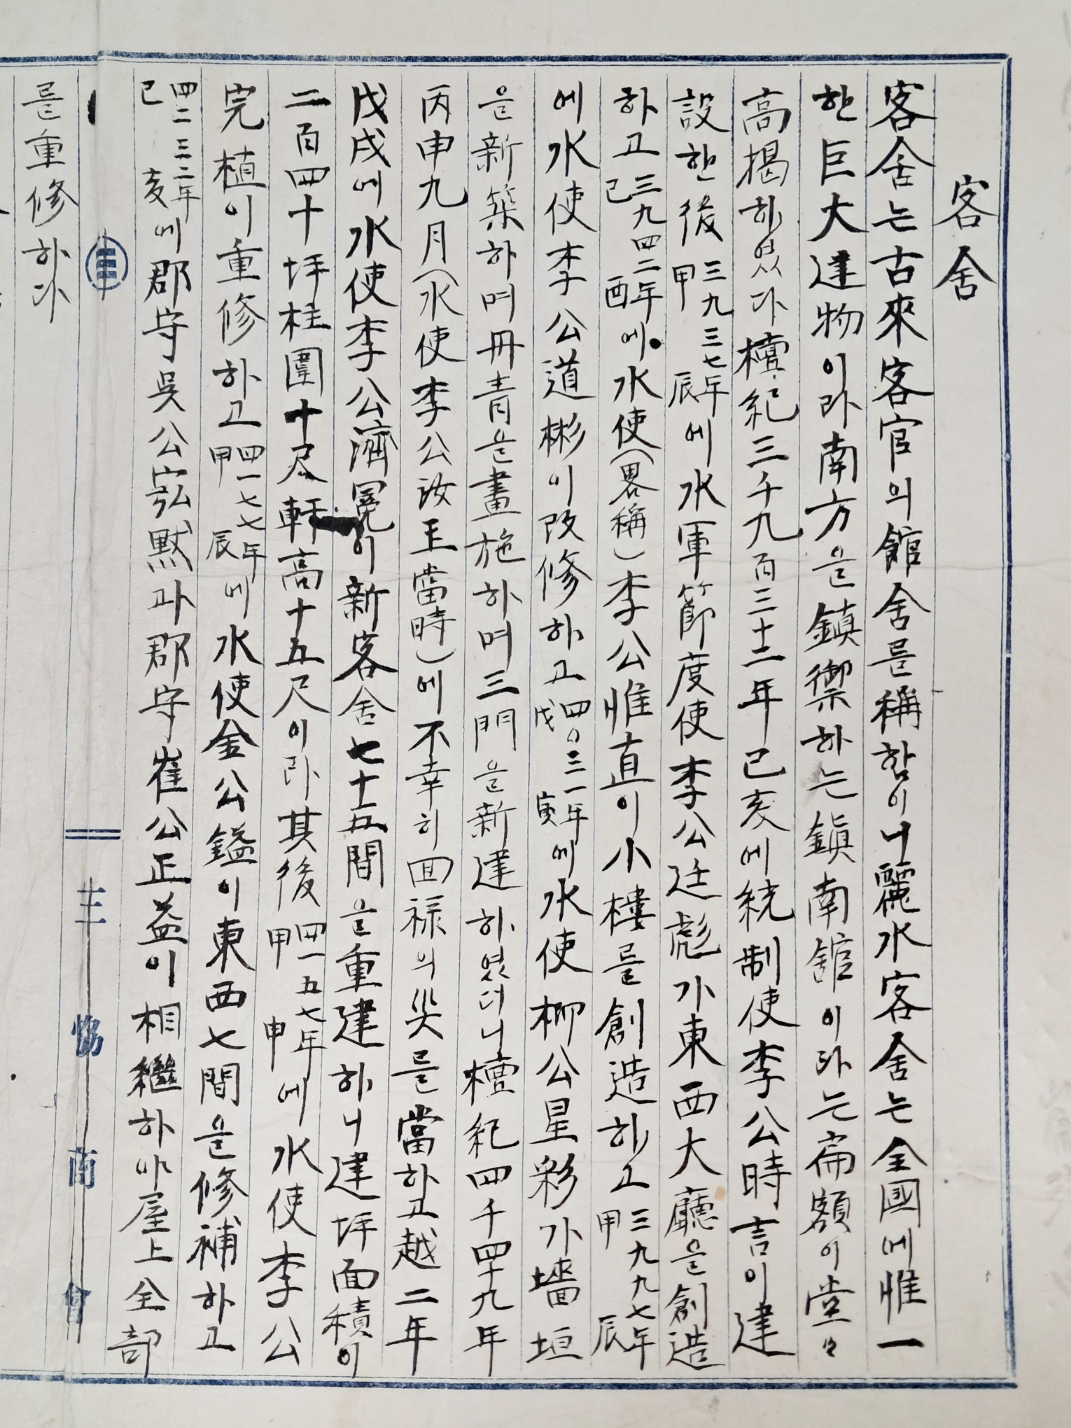 客舍
客舍는古來客官의館舍를稱함이니麗水客舍는全國에惟一
한巨大建物이라南方을鎭禦하는鎭南舘이라는扁額이堂々
高揭하였다檀紀三千九百三十二年己亥에統制使李公時言이建
設한後三九三七年甲辰에水軍節度使李公廷彪가東西大廳을創造
하고三九四二年己酉에水使(畧稱)李公惟直이小樓를創造하고三九九七年甲辰
에水使李公道彬이改修하고四〇三一年戊寅에水使柳公星彩가墻垣
을新築하며丹靑을畫施하며三門을新建하였더니檀紀四千四十九年
丙申九月(水使李公汝玉當時)에不幸히回祿의災를當하고越二年
戊戌에水使李公濟冕이新客舍七十五間을重建하니建坪面積이
二百四十坪柱圍十尺軒高十五尺이라其後四一五七年甲申에水使李公
完植이重修하고四一七七年甲辰에水使金公鎰이東西七間을修補하고
四二三二年己亥에郡守吳公宖默과郡守崔公正益이相繼하야屋上全部
를重修하다
三 協商會